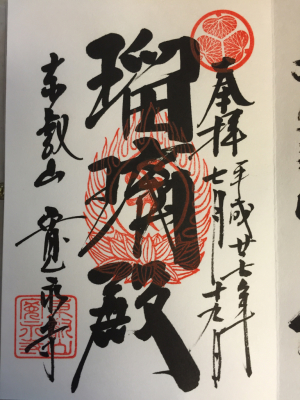 奉拝
平成廿七年
七月十九日
瑠璃殿
東叡山 寛永寺